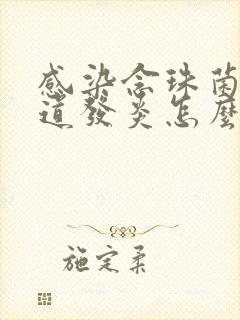 感染念珠菌
道發炎怎麼
施定柔